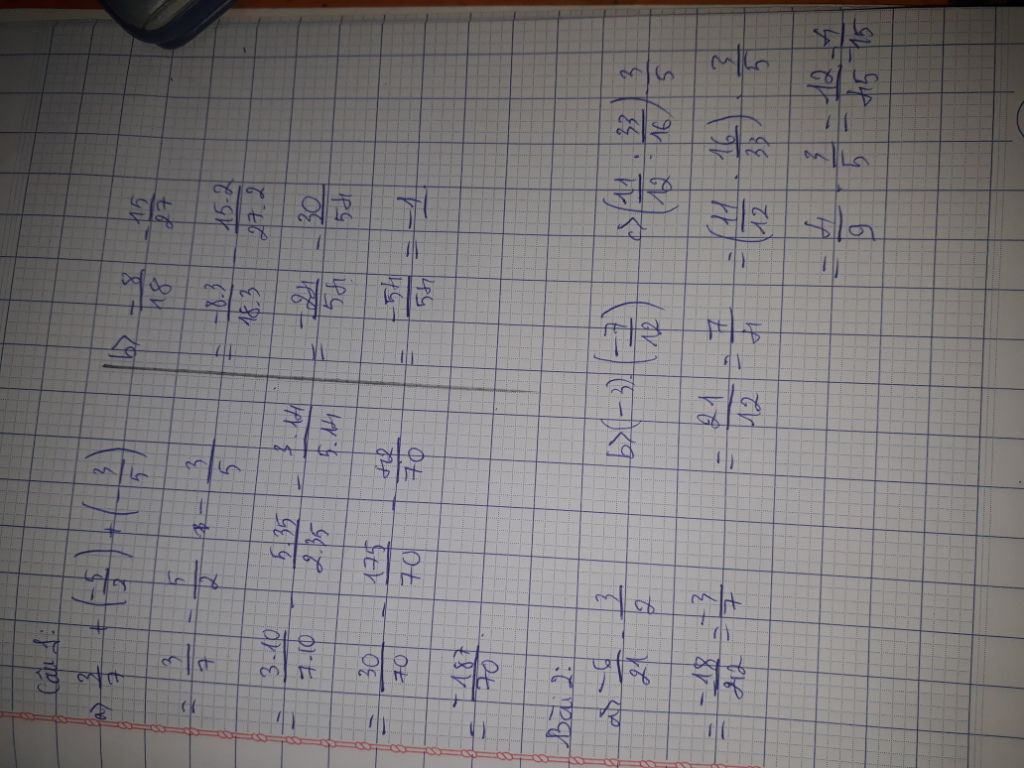 Câu 1:
a) 3/7 + (-5/2) + (-3/5)
= 3/7 - 5/2 - 3/5
= 3.10/7.10 - 5.35/2.35 - 3.14/5.14
= 30/70 - 175/70 - 42/70
= -187/70
b) -8/18 - 15/27
= -8.3/18.3 - 15.2/27.2
= -24/54 - 30/54
= -54/54 = -1
Bài 2:
a) -6/21 . 3/2
= -18/42 = -3/7
b) (-3) (-7/12)
= 21/12 = 7/4
c) (11/12 : 33/16) . 3/5
= (11/12 . 16/33) . 3/5
= 4/9 . 3/5 = 12/45 = 4/15